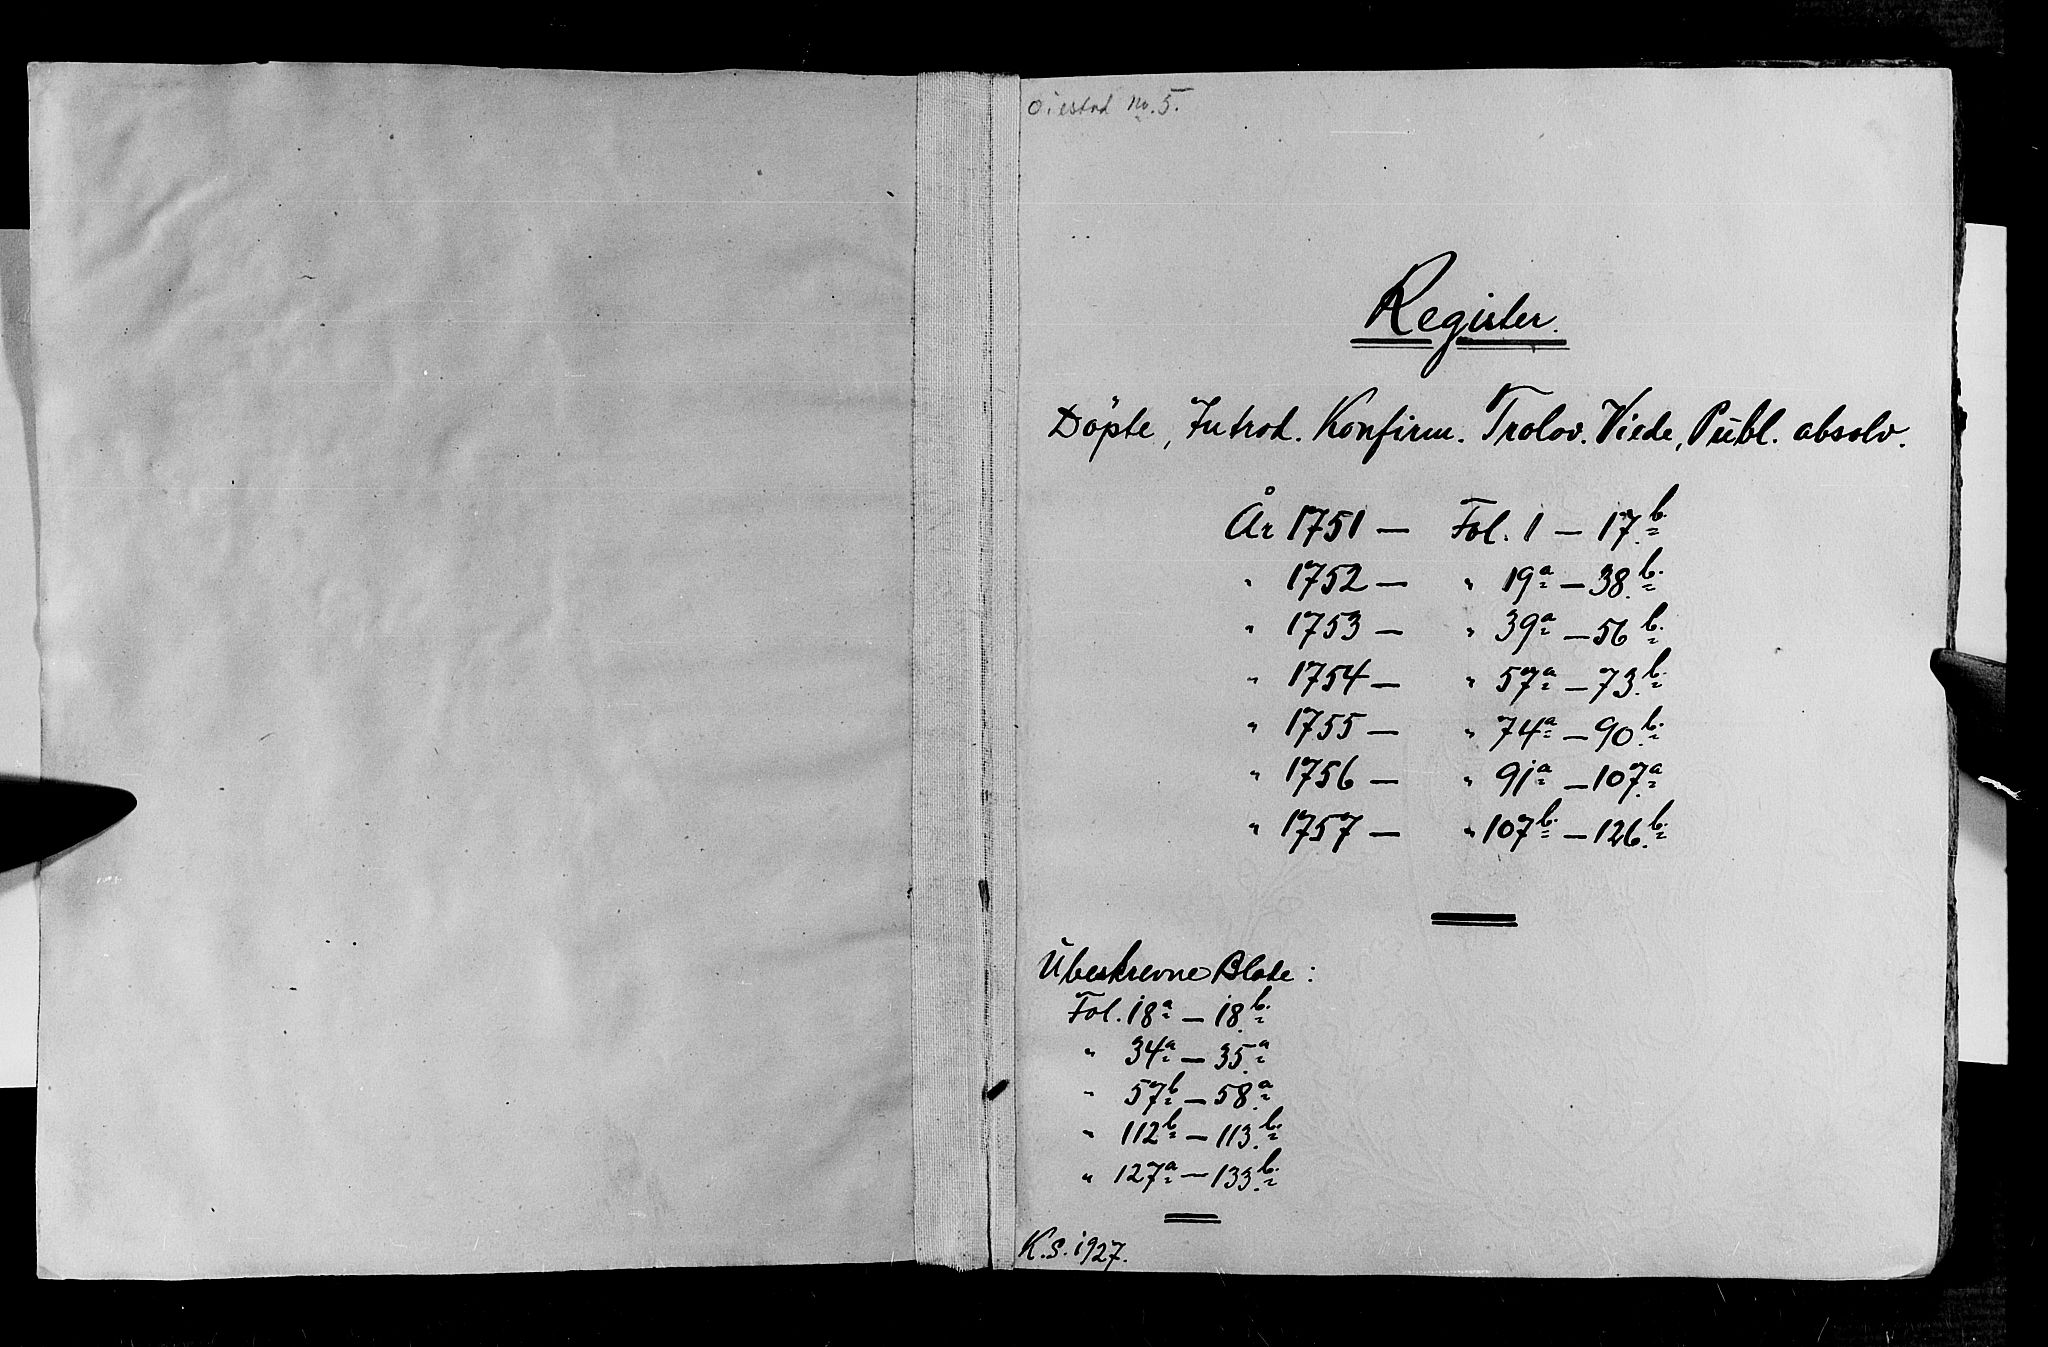 Oiestad No. 5.
Register.
Döpte, Introd. Konfirm. Trolov. Viede, Publ. absolv.
År 1751 — Fol. 1 — 17.b.
" 1752 — " 19a — 38.b.
" 1753 — " 39a — 56 b.
" 1754 — " 57a — 73.b.
" 1755 — " 74a — 90 b.
" 1756 — " 91a — 107.a
" 1757 — " 107b. — 126.b.
Ubeskrevne Blade :
Fol. 18a — 18.b.
" 34a — 35.a
" 57b — 58.a
" 112b — 113.b.
" 127a — 133.b.
K.S. 1927.